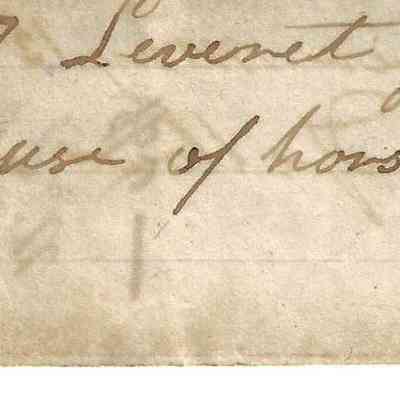 Leveret
use of hors